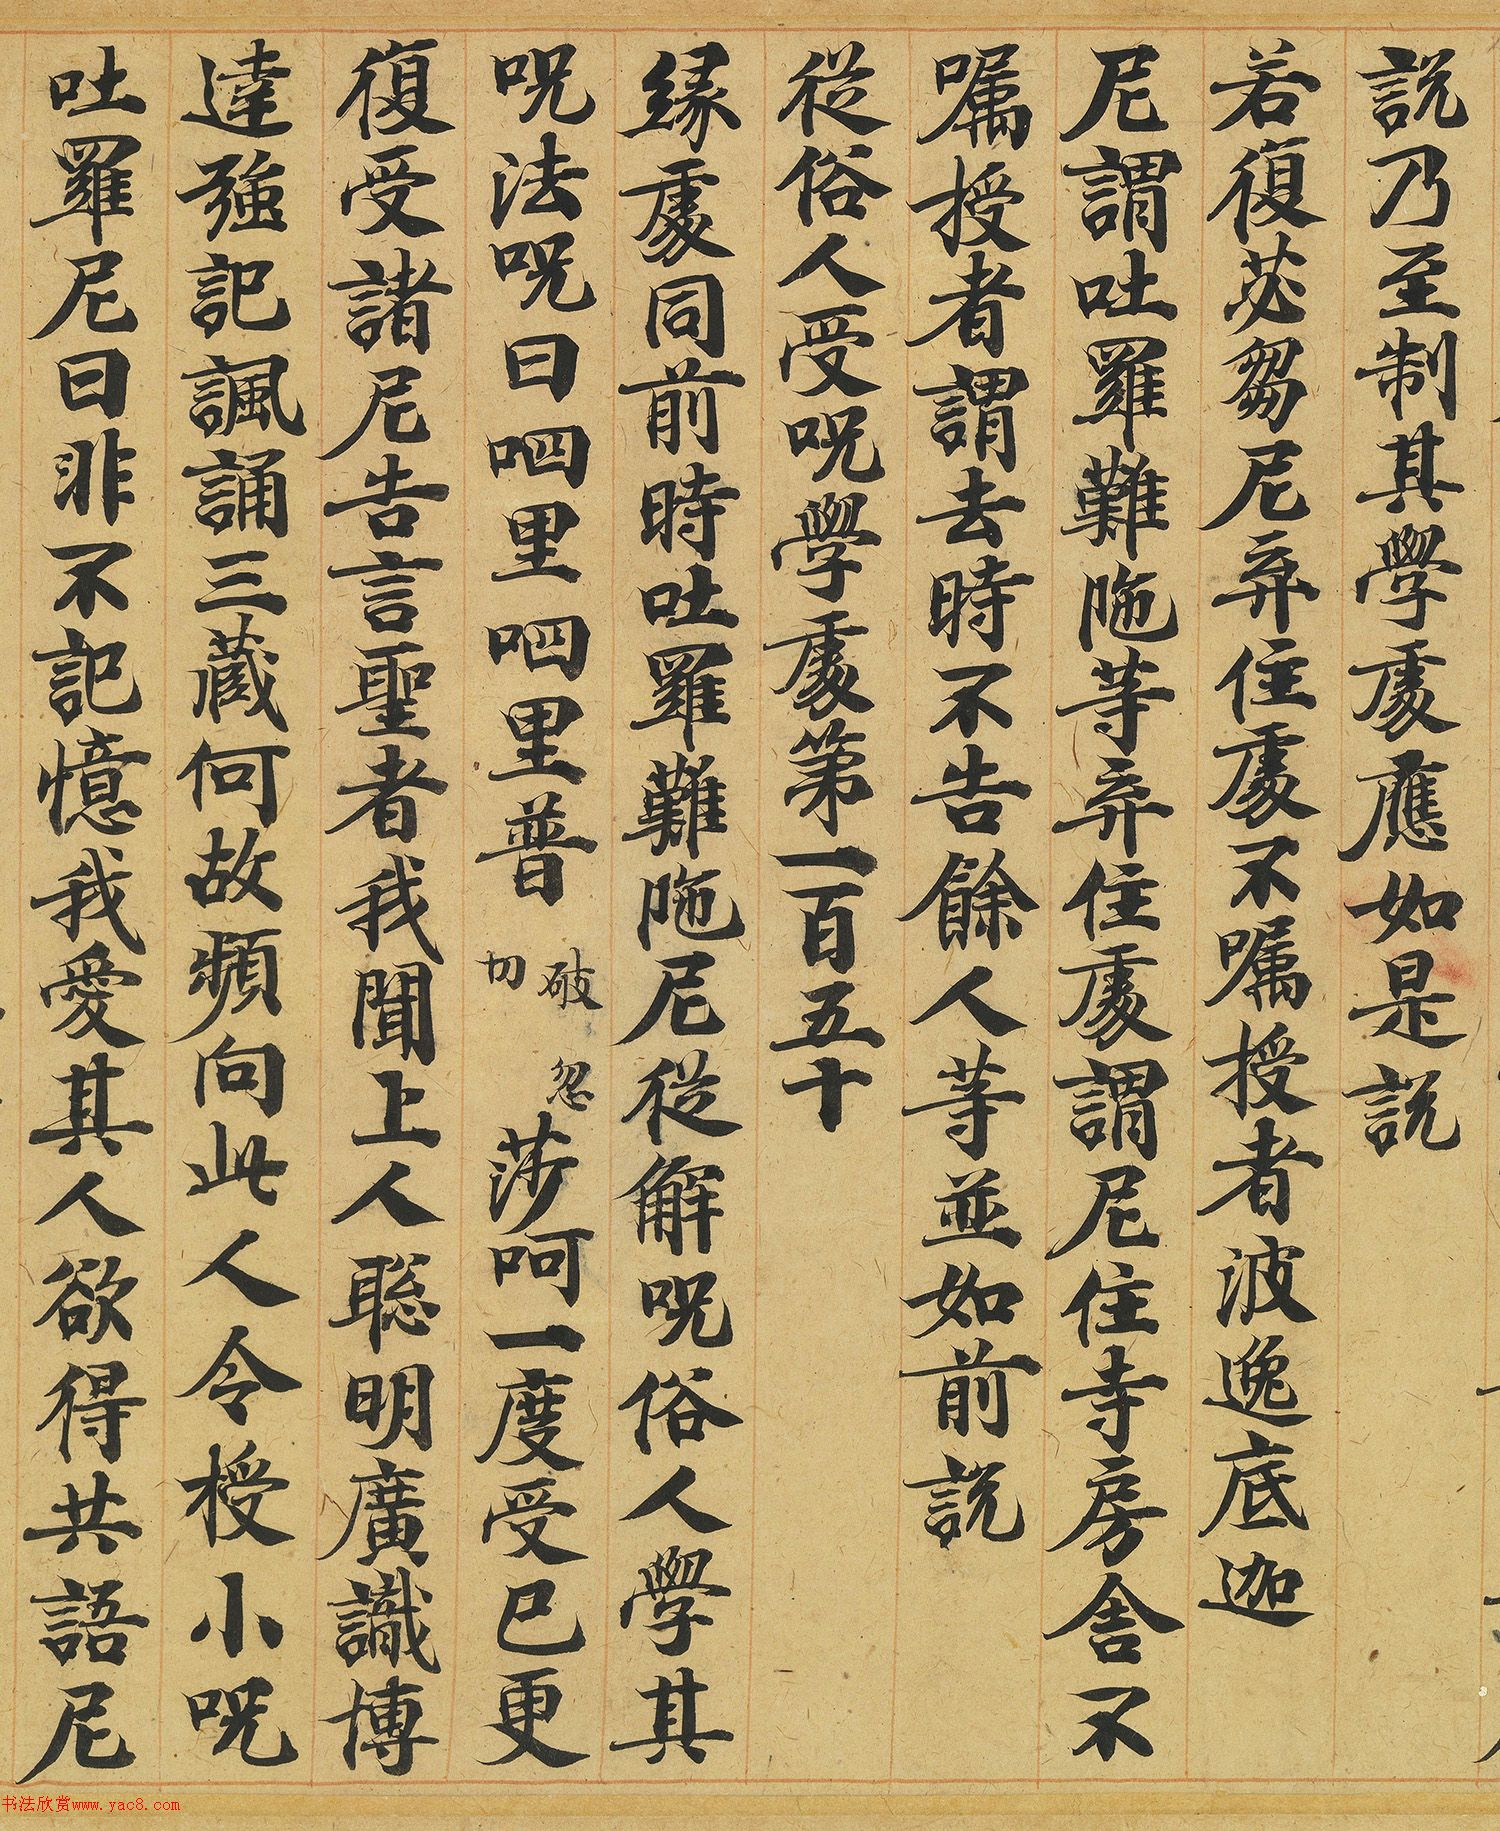 説乃至制其學處應如是説
若復苾芻尼弃住處不囑授者波逸底迦
尼謂吐羅難陁等弃住處謂尼住寺房舍不
囑授者謂去時不告餘人等並如前説
從俗人受呪學處第一百五十
緣處同前時吐羅難陁尼從解呪俗人學其
呪法呪曰呬里呬里普破忽切莎呵一度受已更
復受諸尼告言聖者我聞上人聡明廣識博
達強記諷誦三藏何故頻向此人令授小呪
吐羅尼曰非不記憶我愛其人欲得共語尼
书法欣赏www.yac8.com